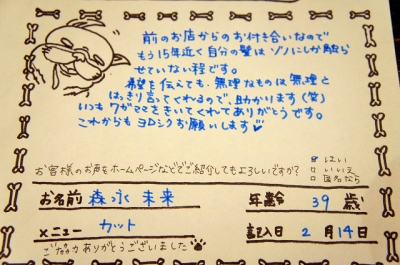 前のお店からのお付き合いなので
もう15年近く自分の髪はゾノにしか触ら
せていない程です。
希望を伝えても、無理なものは無理と
はっきり言ってくれるので、助かります(笑)
いつもワガママをきいてくれてありがとうです。
これからもヨロシクお願いします♡
お客様のお声をホームページなどでご紹介してもよろしいですか?
はい
いいえ
匿名なら
お名前 森永 未来 年齢 39 歳
メニュー カット 記入日 2月14日
ご協力ありがとうございました